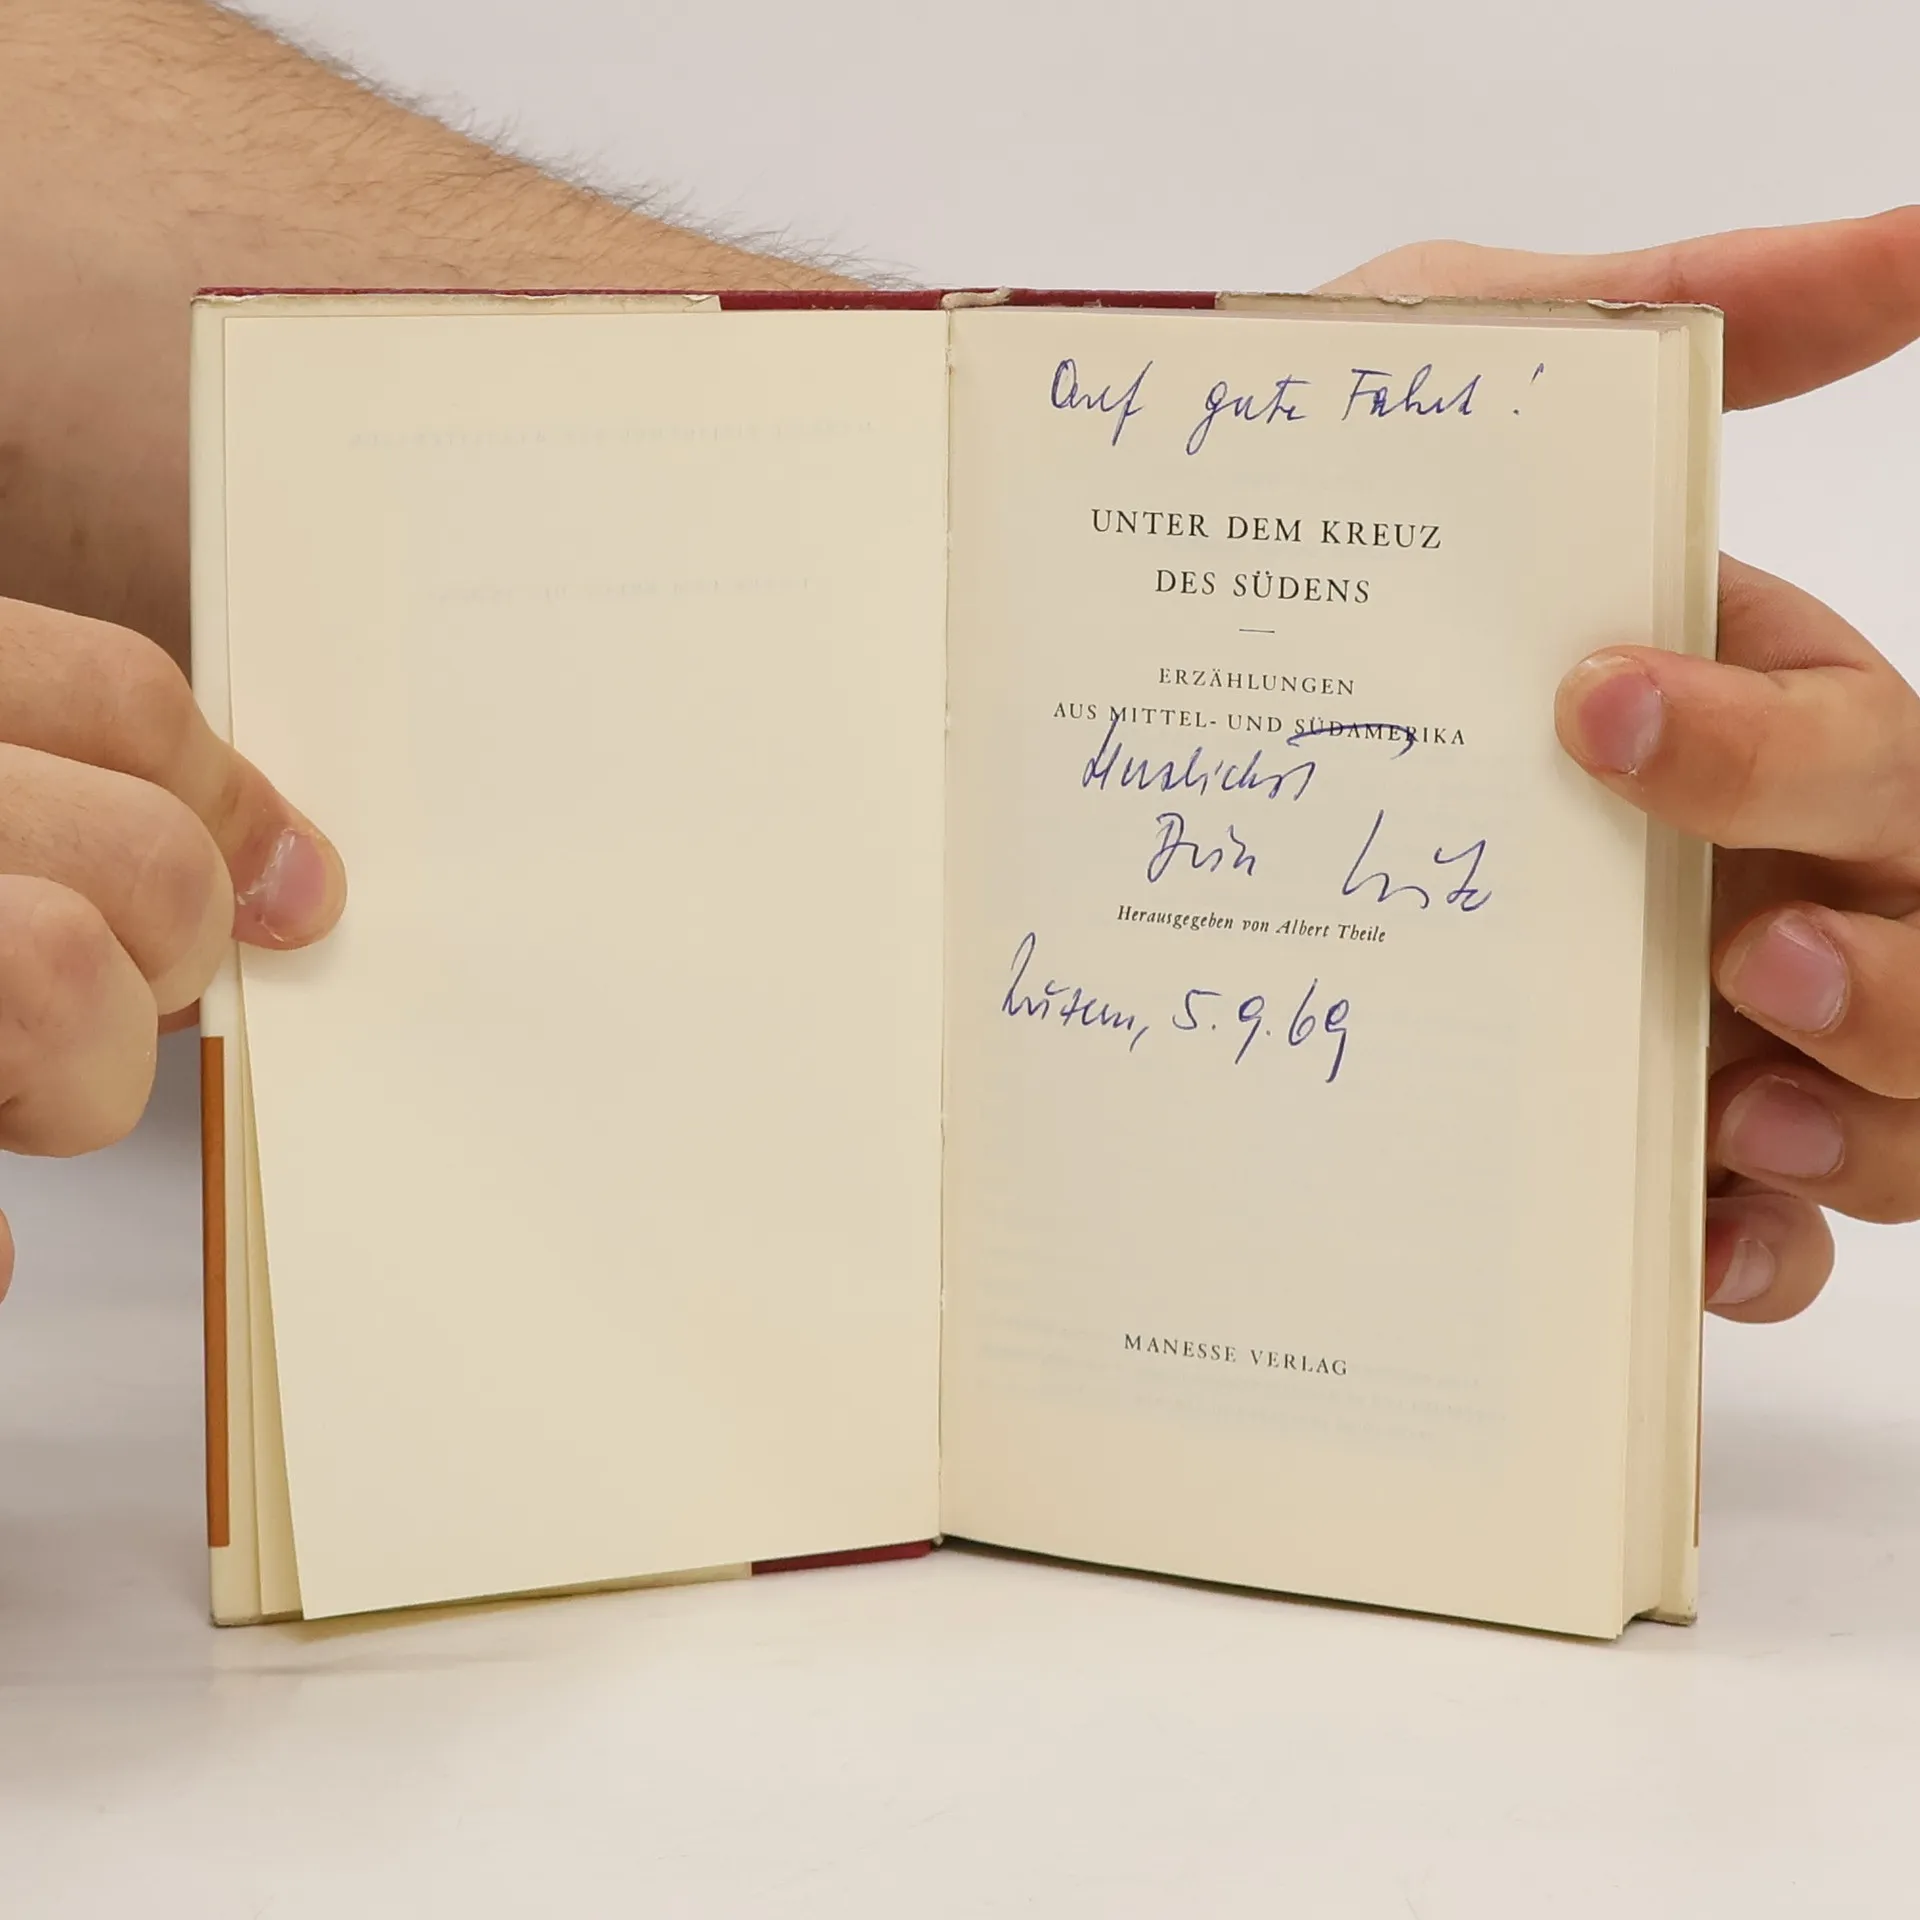 Auf gute Fahrt!
UNTER DEM KREUZ
DES SÜDENS
ERZÄHLUNGEN
AUS MITTEL- UND SÜDAMERIKA
Herzlichst
Dein
Herausgegeben von Albert Theile
Luzern, 5.9.69
MANESSE VERLAG